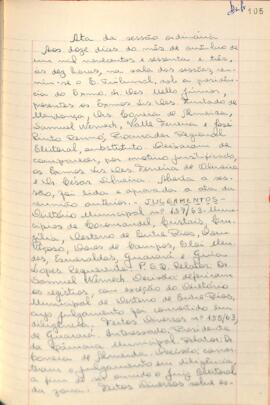 105
Ata da sessão ordinária
Aos doze dias do mês de outubro de
um mil novecentos e sessenta e três,
às dez horas, na sala das sessões, reu-
niu-se o Tribunal, sob a presidên-
cia do Exmo. Sr. Des. Mello Júnior,
presentes os Exmos. Srs. Des. Furtado de
Mendonça, Drs. Correia de Almeida,
Samuel Werneck, Valle Ferreira e José
Pinto Renno, Procurador Regional
Eleitoral, substituto. Deixaram de
comparecer, por motivo justificado,
os Exmos. Srs. Des. Ferreira de Oliveira
e Dr. Cesar Silveira. Aberta a ses-
são, foi lida e aprovada a ata da
reunião anterior. - JULGAMENTOS -
Diretório Municipal nº 137/63. Muni-
cípios de Coromandel,
Desterro de Entre Rios, Dom
Dores de Campos, Elói Men-
des, Esmeraldas, Guarará e Guia
Lopes. Requerente: P.S.D. Relator: Dr.
Samuel Werneck. Decisão: deferiram
os registros, com exceção do Diretório
Municipal de Desterro de Entre Rios,
cujo julgamento foi convertido em
diligência. - Feitos Diversos nº 155/63,
de Guarará. Interessado, Presidente
da Câmara Municipal. Relator: Dr.
Correia de Almeida. Decisão: conver-
teram o julgamento em diligência,
a fim de ser ouvido o juiz eleitoral
da zona. - Feitos Diversos